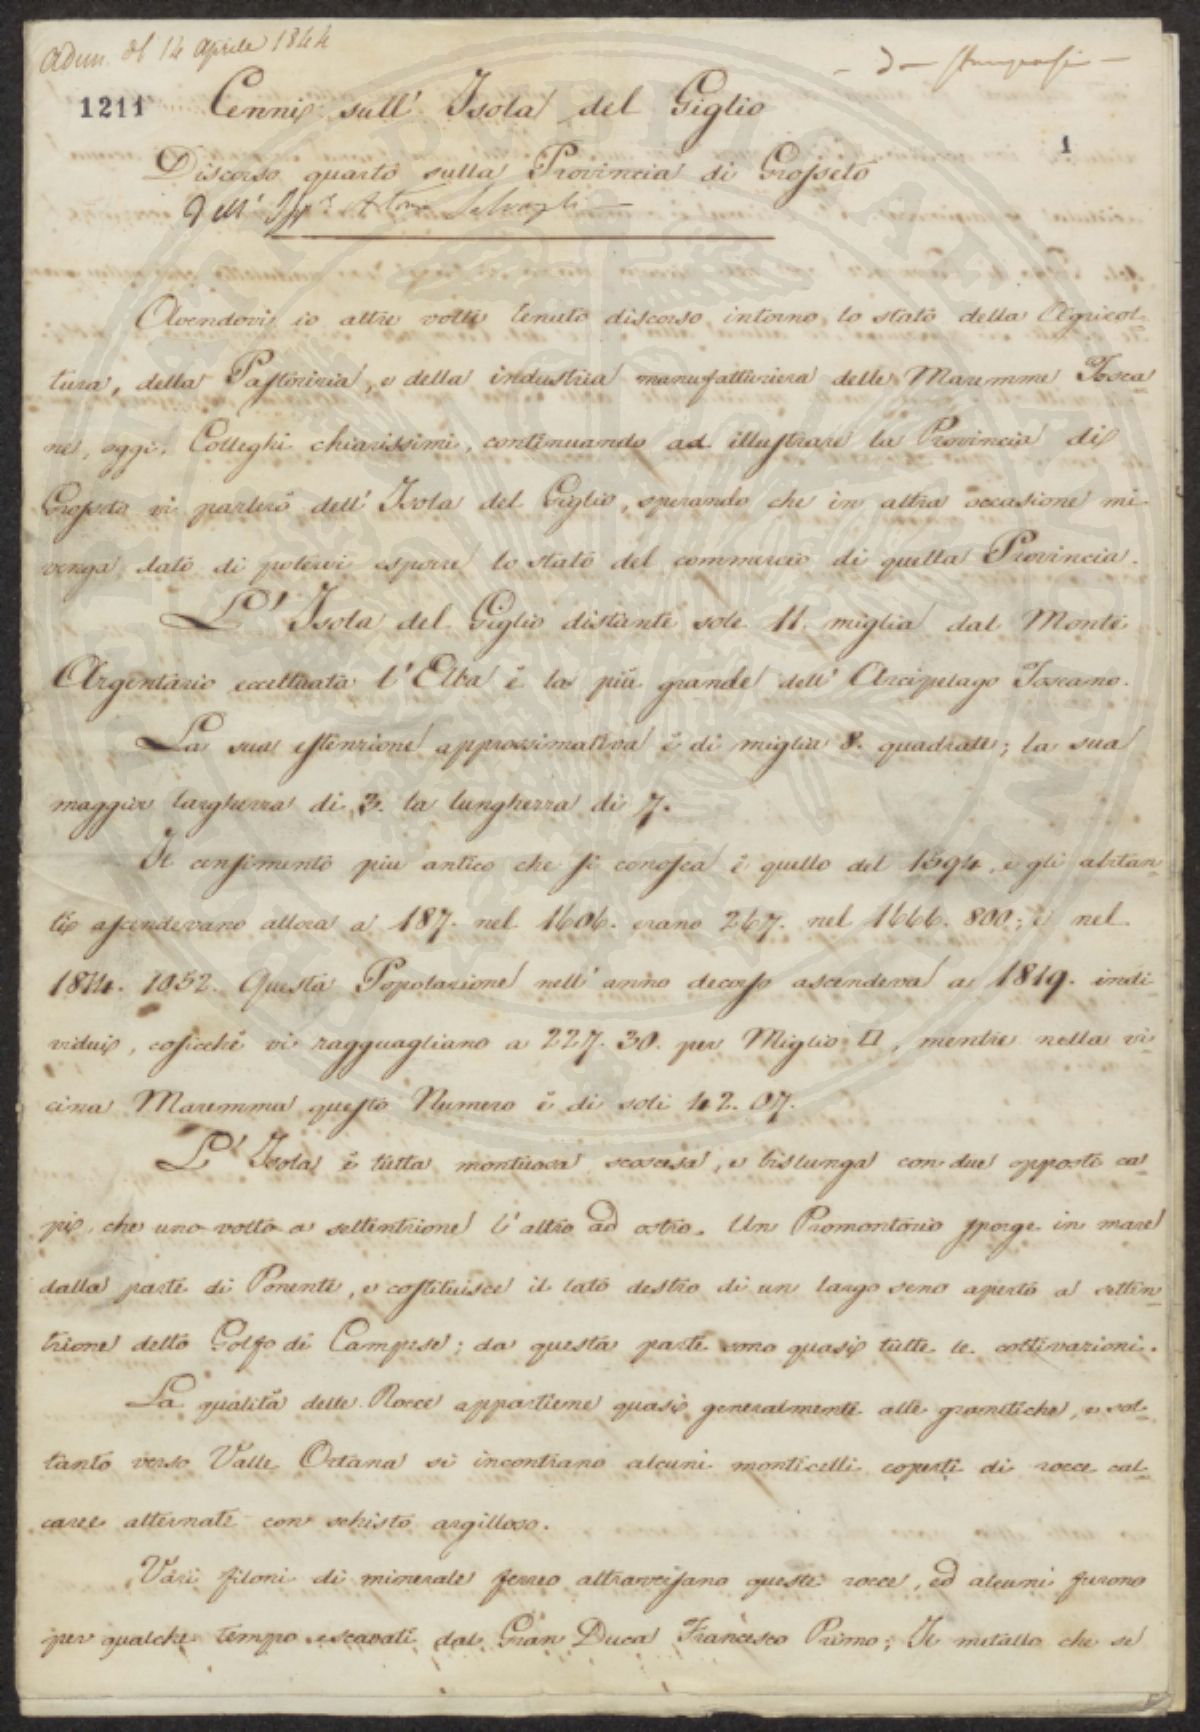 Adun. del 14 Aprile 1844
1211
Cenni sull' Isola del Giglio
1
Discorso quarto sulla Provincia di Grosseto
Dell'
Avendovi io altre volte tenuto discorso intorno lo stato della Agricol-
tura, della Pastorizia, e della industria manufatturiera delle Maremme Tosca-
ne, oggi, Colleghi chiarissimi, continuando ad illustrare la Provincia di
Grosseto vi parlerò dell' Isola del Giglio, sperando che in altra occasione mi
venga dato di potervi esporre lo stato del commercio di quella Provincia.
L' Isola del Giglio distante sole 11. miglia dal Monte
Argentario eccettuata l' Elba è la più grande dell' Arcipelago Toscano.
La sua estenzione approssimativa è di miglia 8. quadrate; la sua
maggior larghezza di 3. la lunghezza di 7.
Il censimento piu antico che si conosca è quello del 1594, e gli abitan-
ti ascendevano allora a 187. nel 1606. erano 267. nel 1666. 800; e nel
1814. 1052. Questa Popolazione nell' anno decorso ascendeva a 1819. indi-
vidui, cosicchè vi ragguagliano a 227. 30. per Miglio □, mentre nella vi-
cina Maremma questo Numero è di soli 42. 07.
L' Isola è tutta montuosa scoscesa, e bislunga con due opposti ca-
pi, che uno volto a settentrione l' altro ad ostro. Un Promontorio sporge in mare
dalla parte di Ponente, e costituisce il lato destro di un largo seno aperto a setten-
trione detto Golfo di Campese; da questa parte sono quasi tutte le coltivazioni.
La qualità delle Rocce appartiene quasi generalmente alle granitiche, e sol-
tanto verso Valle Ortana si incontrano alcuni monticelli coperti di rocce cal-
caree alternate con schisto argilloso.
Vari filoni di minerale ferreo attraversano queste rocce, ed alcuni furono
per qualche tempo escavati dal Gran Duca Francesco Primo; Il metallo che se